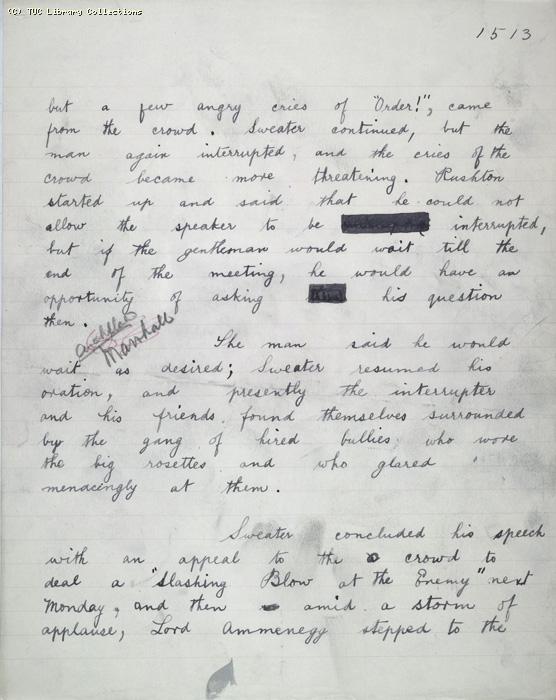 (C) TUC Library Collections
1513
but a few angry cries of "Order!", came
from the crowd. Sweater continued, but the
man again interrupted, and the cries of the
crowd became more threatening. Rushton
started up and said that he could not
allow the speaker to be interrupted,
but if the gentleman would wait till the
end of the meeting, he would have an
opportunity of asking his question
then.
Marshall
The man said he would
wait as desired; Sweater resumed his
oration, and presently the interrupter
and his friends found themselves surrounded
by the gang of hired bullies who wore
the big rosettes and who glared
menacingly at them.
Sweater concluded his speech
with an appeal to the crowd to
deal a "Slashing Blow at the Enemy" next
Monday, and then amid a storm of
applause, Lord Ammenegg stepped to the